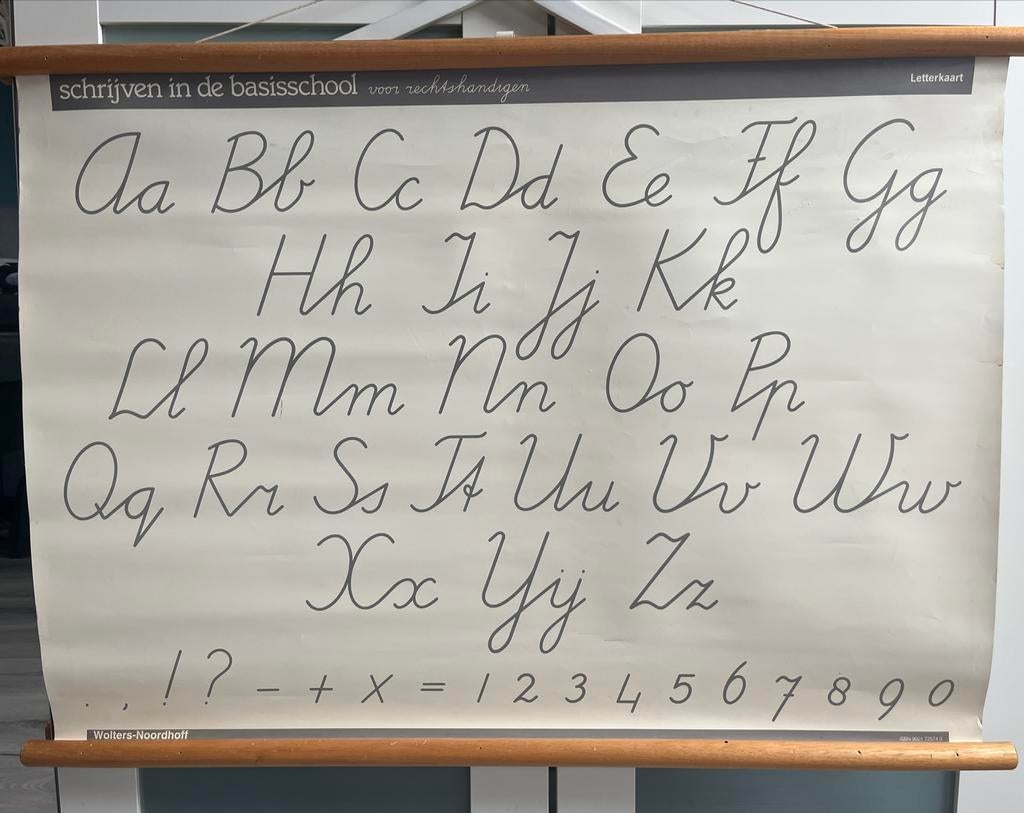 schrijven in de basisschool voor rechtshandigen Letterkaart
Aa Bb Cc Dd Ee Ff Gg
Hh Ii Jj Kk
Ll Mm Nn Oo Pp
Qq Rr Ss Tt Uu Vv Ww
Xx Yij Zz
. , ! ? - + x = 1 2 3 4 5 6 7 8 9 0
Wolters-Noordhoff